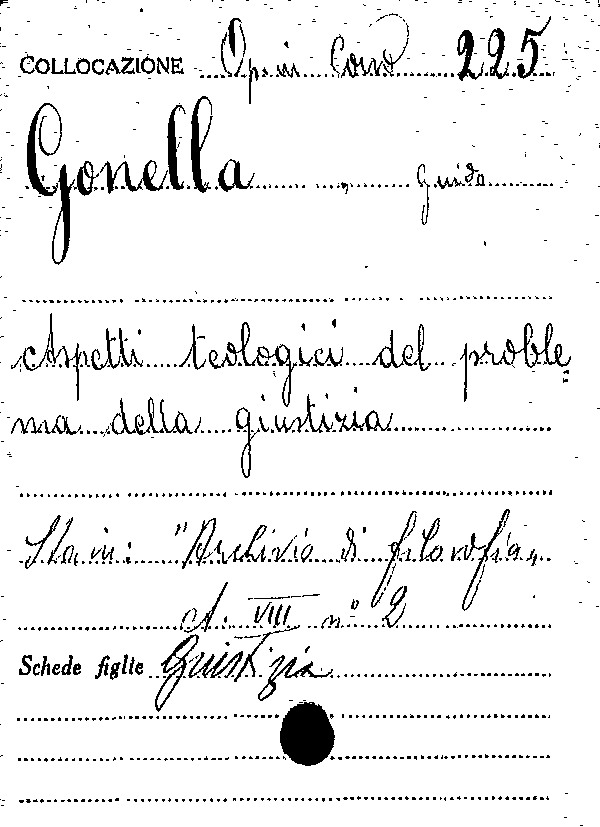 COLLOCAZIONE Op. in Cons 225
Gonella, Guido
Aspetti teologici del proble=
ma della giustizia
Sta in: "Archivio di filosofia„
A. VIII n° 2
Schede figlie Giustizia